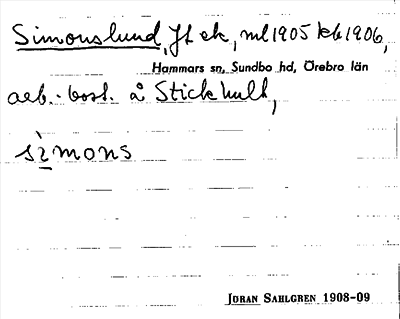 Simonslund, Jl ek, ml 1905 kb 1906,
Hammars sn, Sundbo hd, Örebro län
aeb.-bost. å Stickhult,
sìmons
JÖRAN SAHLGREN 1908-09